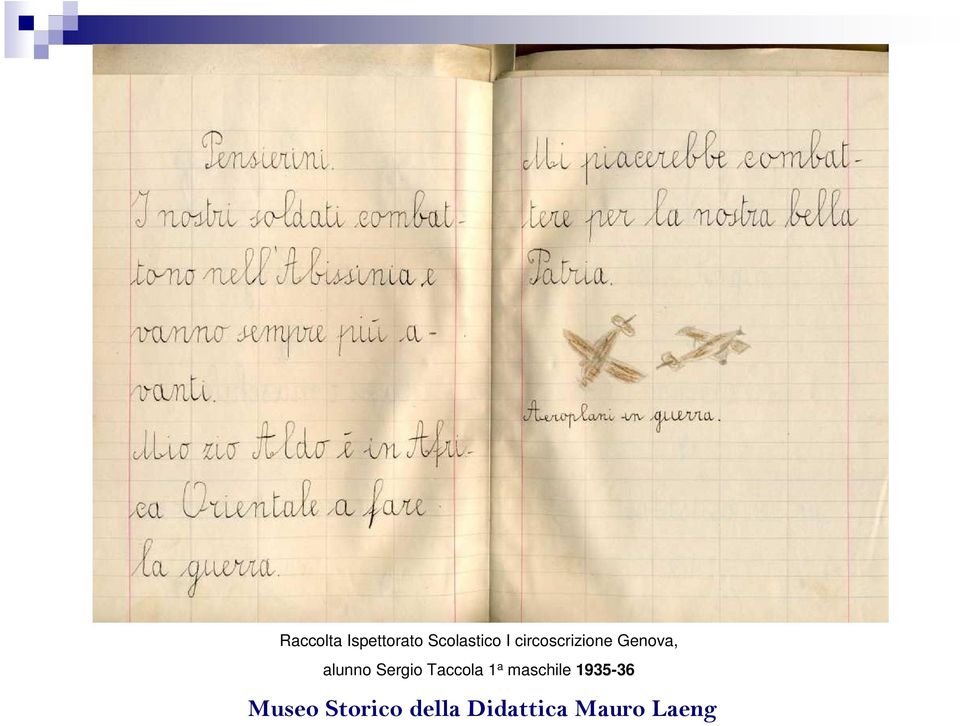 Pensierini.
I nostri soldati combat-
tono nell'Abissinia e
vanno sempre più a-
vanti.
Mio zio Aldo è in Afri-
ca Orientale a fare
la guerra.
Mi piacerebbe combat-
tere per la nostra bella
Patria.
Aeroplani in guerra.
Raccolta Ispettorato Scolastico I circoscrizione Genova,
alunno Sergio Taccola 1ª maschile 1935-36
Museo Storico della Didattica Mauro Laeng